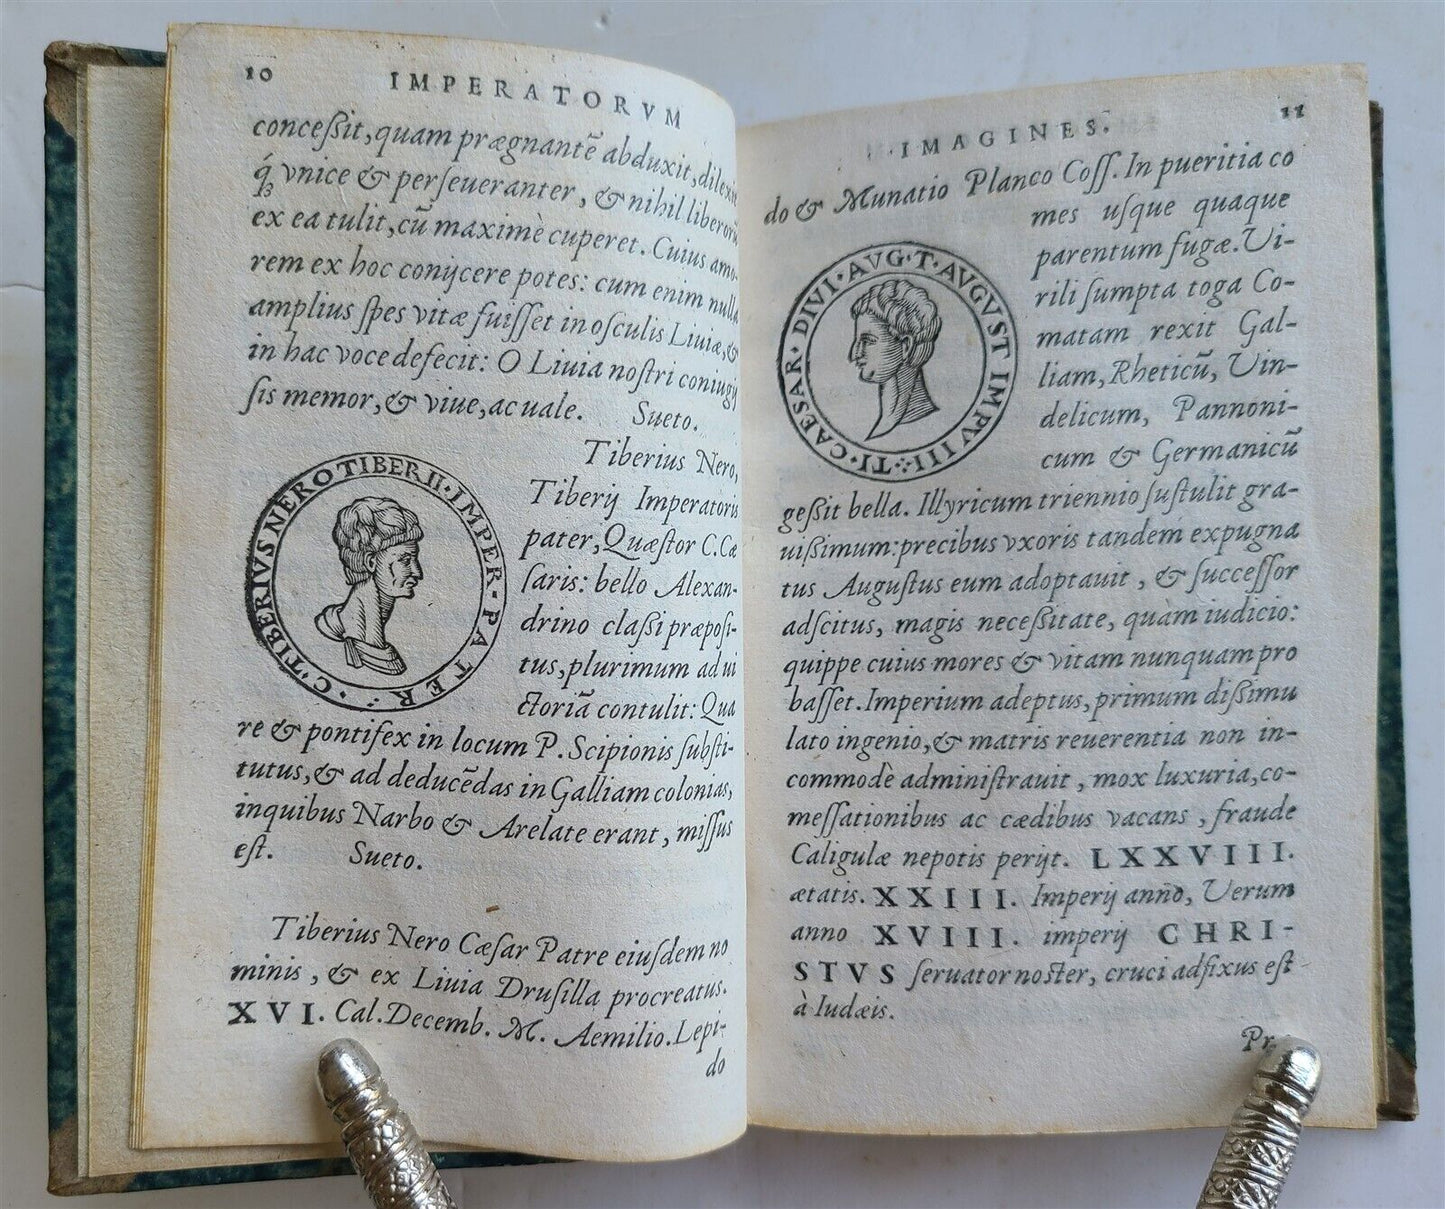 10 IMPERATORVM
conceſsit, quam prægnantē abduxit, dilexit
q́ꝫ vnice & perſeueranter, & nihil liberorū
ex ea tulit, cū maximè cuperet. Cuius amo-
rem ex hoc conijcere potes: cum enim nulla
amplius ſpes vitæ fuiſſet in oſculis Liuiæ, &
in hac voce defecit: O Liuia noſtri coniugij
ſis memor, & viue, ac uale. Sueto.
C · TIBERIVS NERO TIBERII · IMPER · PATER
Tiberius Nero,
Tiberij Imperatoris
pater, Quæſtor C. Cæ
ſaris: bello Alexan-
drino claſsi præpoſi-
tus, plurimum ad ui
ctoriā contulit: Qua
re & pontifex in locum P. Scipionis ſubſti-
tutus, & ad deducēdas in Galliam colonias,
inquibus Narbo & Arelate erant, miſſus
eſt. Sueto.
Tiberius Nero Cæſar Patre eiuſdem no
minis, & ex Liuia Druſilla procreatus.
XVI. Cal. Decemb. M. Aemilio. Lepi-
do
IMAGINES. 11
do & Munatio Planco Coſſ. In pueritia co
mes uſque quaque
parentum fugæ. Ui-
rili ſumpta toga Co-
matam rexit Gal-
liam, Rheticū, Uin-
delicum, Pannoni-
cum & Germanicū
TI · CAESAR · DIVI · AVG · T · AVGVST IMP VIII
geſsit bella. Illyricum triennio ſuſtulit gra-
uiſsimum: precibus vxoris tandem expugna
tus Auguſtus eum adoptauit, & ſucceſſor
adſcitus, magis neceſsitate, quàm iudicio:
quippe cuius mores & vitam nunquam pro
baſſet. Imperium adeptus, primum diſsimu
lato ingenio, & matris reuerentia non in-
commodè adminiſtrauit, mox luxuria, co-
meſſationibus ac cædibus vacans, fraude
Caligulæ nepotis perijt. LXXVIII.
ætatis. XXIII. Imperij anno, Verum
anno XVIII. imperij CHRI-
STVS ſeruator noſter, cruci adfixus eſt
à Iudæis.